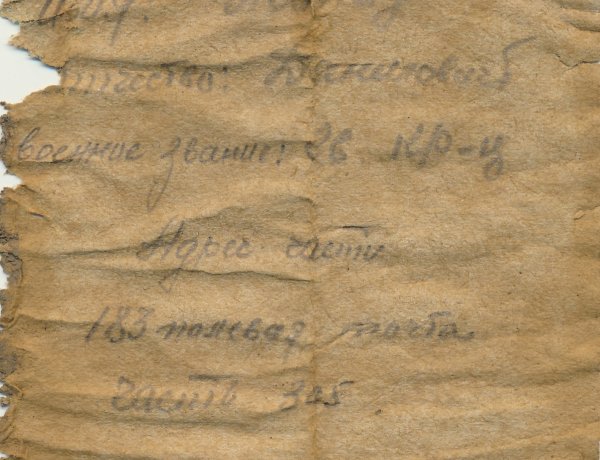 отчество:
военное звание: Зв. кр-ц
Адрес части
183 полевая почта
часть 305